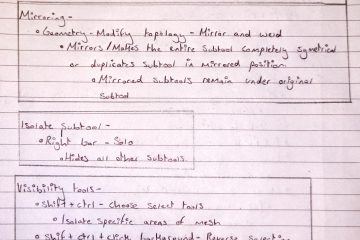 Mirroring -
• Geometry - Modify topology - Mirror and weld
• Mirrors/Makes the entire Subtool completely symetrical
or duplicates subtool in mirrored position.
• Mirrored subtools remain under original
subtool
Isolate subtool -
• Right bar - Solo
• Hides all other subtools.
Visibility tools -
• Shift + ctrl - Choose select tools
• Isolate specific areas of mesh
• Shift + ctrl + click background - Reverse selection